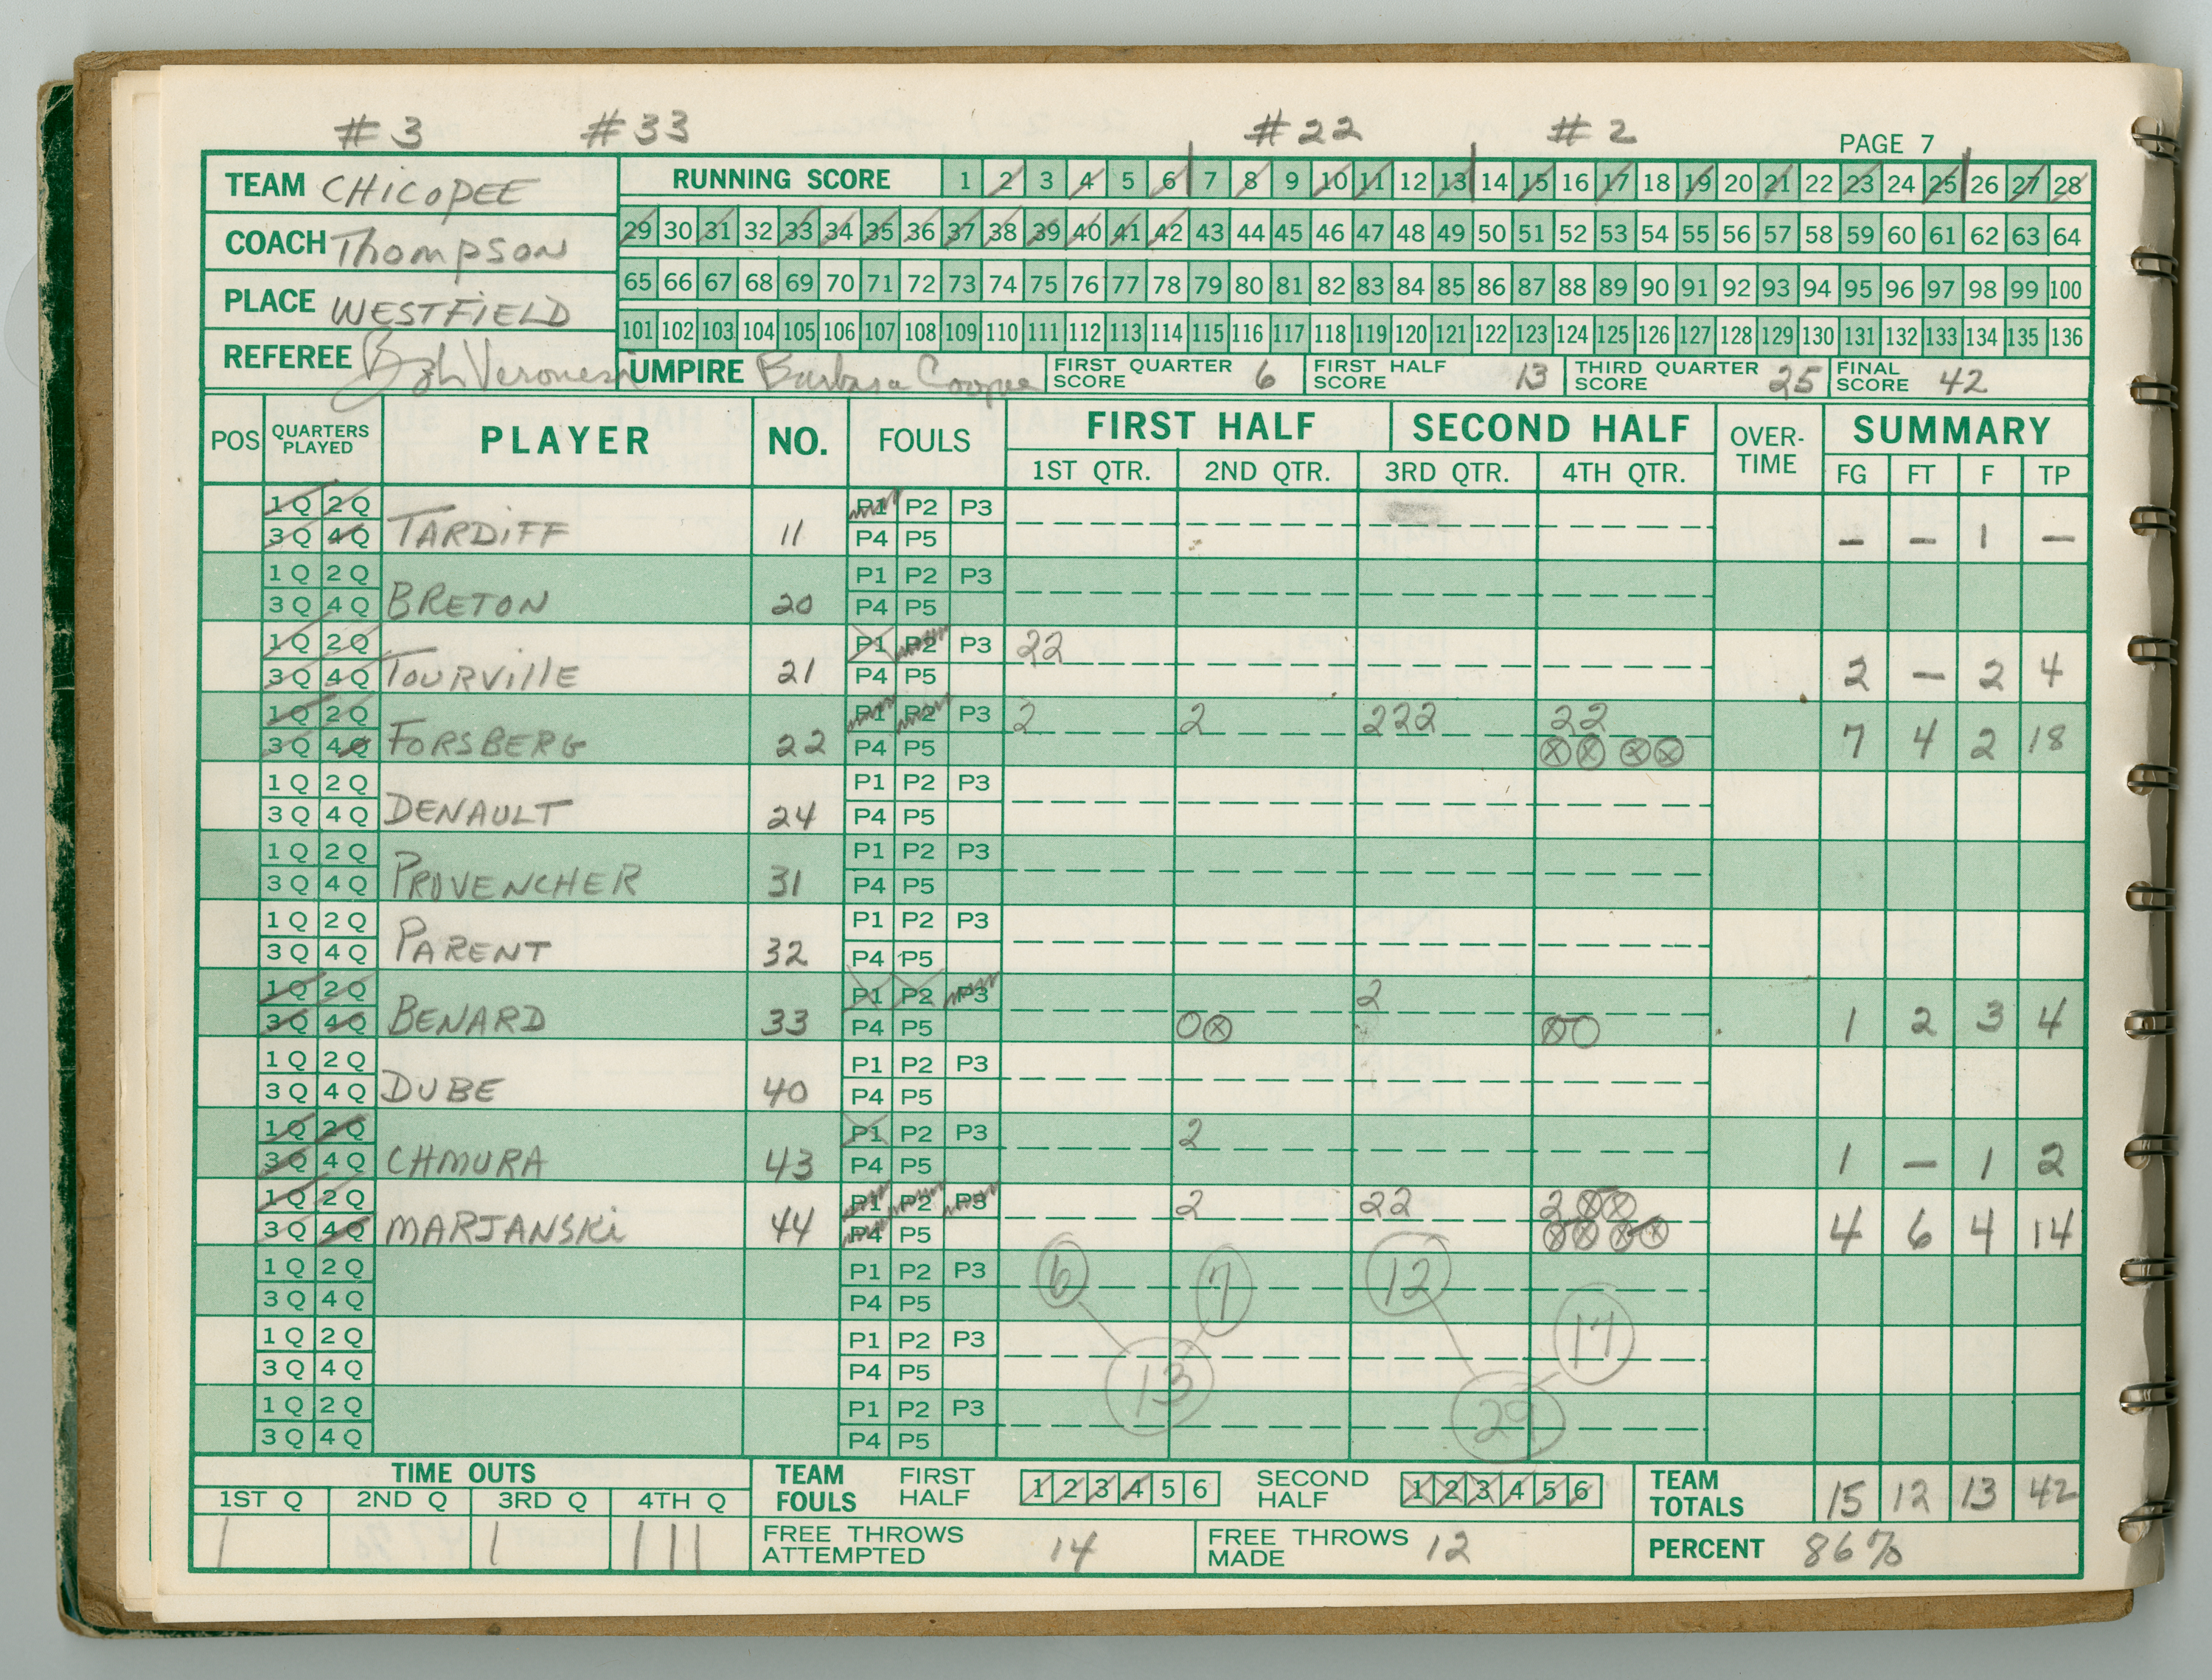 #3 #33 #22 #2 PAGE 7
TEAM CHICOPEE
COACH Thompson
PLACE WESTFIELD
REFEREE Bob Veronesi UMPIRE Barbara
RUNNING SCORE 1 2 3 4 5 6 7 8 9 10 11 12 13 14 15 16 17 18 19 20 21 22 23 24 25 26 27 28
29 30 31 32 33 34 35 36 37 38 39 40 41 42 43 44 45 46 47 48 49 50 51 52 53 54 55 56 57 58 59 60 61 62 63 64
65 66 67 68 69 70 71 72 73 74 75 76 77 78 79 80 81 82 83 84 85 86 87 88 89 90 91 92 93 94 95 96 97 98 99 100
101 102 103 104 105 106 107 108 109 110 111 112 113 114 115 116 117 118 119 120 121 122 123 124 125 126 127 128 129 130 131 132 133 134 135 136
FIRST QUARTER SCORE 6 FIRST HALF SCORE 13 THIRD QUARTER SCORE 25 FINAL SCORE 42
POS QUARTERS PLAYED PLAYER NO. FOULS FIRST HALF SECOND HALF OVER-TIME SUMMARY
1ST QTR. 2ND QTR. 3RD QTR. 4TH QTR. FG FT F TP
1Q 2Q P1 P2 P3
3Q 4Q TARDIFF 11 P4 P5 – – 1 –
1Q 2Q P1 P2 P3
3Q 4Q BRETON 20 P4 P5
1Q 2Q P1 P2 P3 22
3Q 4Q TOURVILLE 21 P4 P5 2 – 2 4
1Q 2Q P1 P2 P3 2 2 222 22
3Q 4Q FORSBERG 22 P4 P5 ⊗⊗ ⊗⊗ 7 4 2 18
1Q 2Q P1 P2 P3
3Q 4Q DENAULT 24 P4 P5
1Q 2Q P1 P2 P3
3Q 4Q PROVENCHER 31 P4 P5
1Q 2Q P1 P2 P3
3Q 4Q PARENT 32 P4 P5
1Q 2Q P1 P2 P3 2
3Q 4Q BENARD 33 P4 P5 O⊗ ⊗O 1 2 3 4
1Q 2Q P1 P2 P3
3Q 4Q DUBE 40 P4 P5
1Q 2Q P1 P2 P3 2
3Q 4Q CHMURA 43 P4 P5 1 – 1 2
1Q 2Q P1 P2 P3 2 22 2 ⊗⊗
3Q 4Q MARJANSKI 44 P4 P5 ⊗⊗ ⊗⊗ 4 6 4 14
1Q 2Q P1 P2 P3 6 7 12
3Q 4Q P4 P5 17
1Q 2Q P1 P2 P3
3Q 4Q P4 P5 13
1Q 2Q P1 P2 P3 29
3Q 4Q P4 P5
TIME OUTS
1ST Q 2ND Q 3RD Q 4TH Q
| | |||
TEAM FOULS FIRST HALF 1 2 3 4 5 6 SECOND HALF 1 2 3 4 5 6
TEAM TOTALS 15 12 13 42
FREE THROWS ATTEMPTED 14 FREE THROWS MADE 12 PERCENT 86%